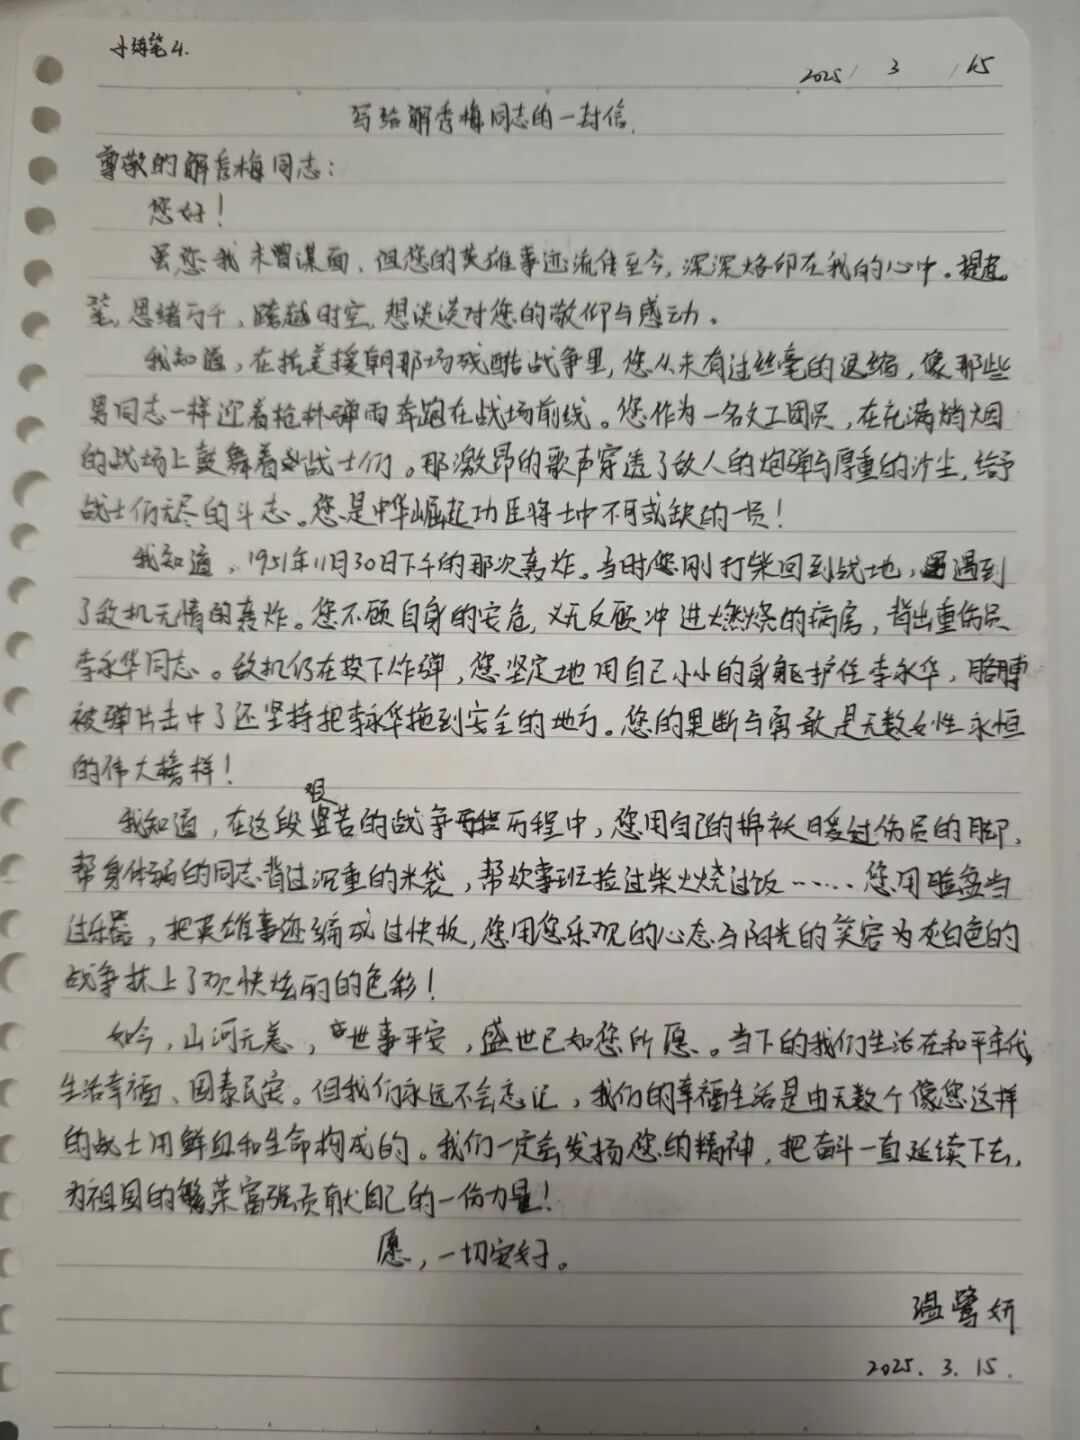 小练笔4.
2025/ 3 /15
写给解秀梅同志的一封信.
尊敬的解秀梅同志：
您好！
虽您我未曾谋面，但您的英雄事迹流传至今，深深烙印在我的心中。提起
笔，思绪万千，跨越时空，想谈谈对您的敬仰与感动。
我知道，在抗美援朝那场残酷战争里，您从未有过丝毫的退缩，像那些
男同志一样迎着枪林弹雨奔跑在战场前线。您作为一名文工团员，在充满烟
的战场上鼓舞着战士们。那激昂的歌声穿透了敌人的炮弹与厚重的沙尘，给予
战士们无尽的斗志。您是中华崛起功臣将士中不可或缺的一员！
我知道，1951年11月30日下午的那次轰炸。当时您刚打柴回到战地，遇到
了敌机无情的轰炸。您不顾自身的安危，义无反顾冲进燃烧的病房，背出重伤员
李永华同志。敌机仍在投下炸弹，您坚定地用自己小小的身躯护住李永华，胳膊
被弹片击中了还坚持把李永华拖到安全的地方。您的果断与勇敢是无数女性永恒
的伟大榜样！
我知道，在这段艰苦的战争历程中，您用自己的棉袄暖过伤员的脚，
帮身体弱的同志背过沉重的米袋，帮炊事班捡过柴火烧过饭……您用脸盆当
过乐器，把英雄事迹编成过快板，您用您乐观的心态与阳光的笑容为灰白色的
战争抹上了欢快炫丽的色彩！
如今，山河无恙，世事平安，盛世已如您所愿。当下的我们生活在和平年代，
生活幸福、国泰民安。但我们永远不会忘记，我们的幸福生活是由无数个像您这样
的战士用鲜血和生命构成的。我们一定会发扬您的精神，把奋斗一直延续下去，
为祖国的繁荣富强贡献自己的一份力量！
愿，一切安好。
温鹭妍
2025.3.15.